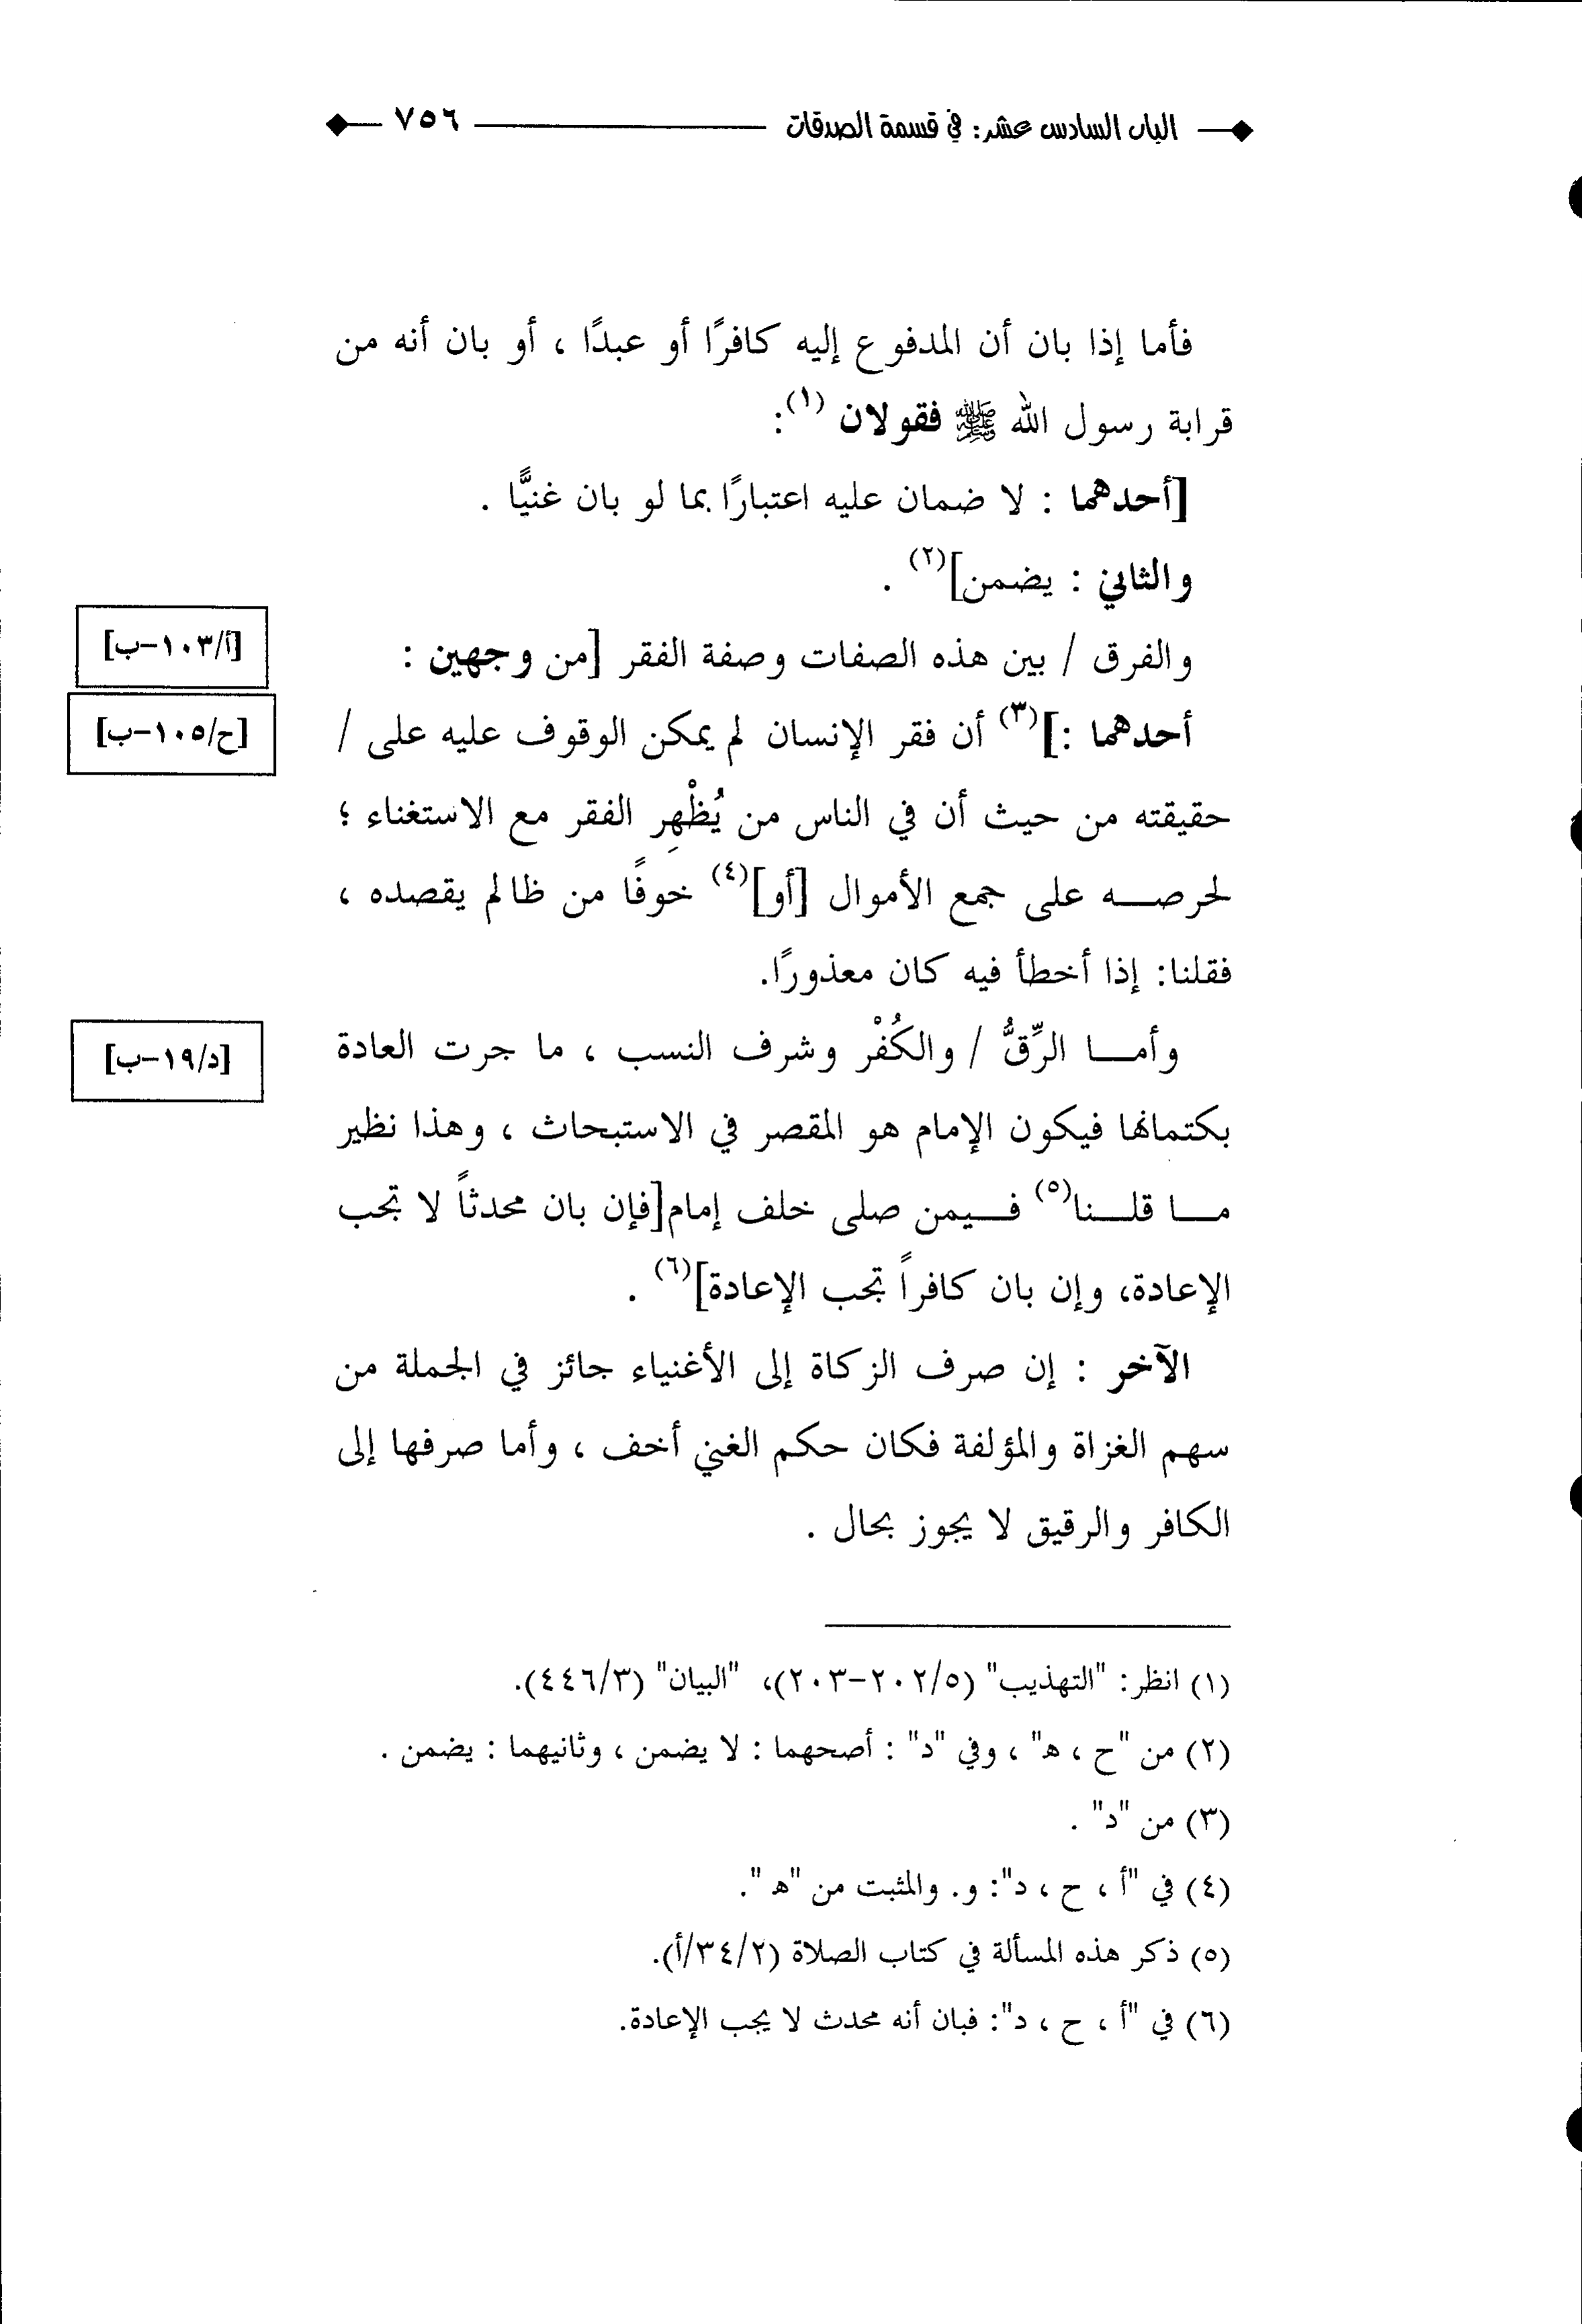 الباب السادس عشر: في قسمة الصدقات ٧٥٦
فأما إذا بان أن المدفوع إليه كافرًا أو عبدًا ، أو بان أنه من
قرابة رسول الله ﷺ فقولان (١):
[أحدهما : لا ضمان عليه اعتبارًا بما لو بان غنيًّا .
والثاني : يضمن](٢) .
والفرق / بين هذه الصفات وصفة الفقر [من وجهين :
[أ/١٠٣-ب]
أحدهما :](٣) أن فقر الإنسان لم يمكن الوقوف عليه على /
[ح/١٠٥-ب]
حقيقته من حيث أن في الناس من يُظْهِر الفقر مع الاستغناء ؛
لحرصه على جمع الأموال [أو](٤) خوفًا من ظالم يقصده ،
فقلنا: إذا أخطأ فيه كان معذورًا.
وأما الرِّقُّ / والكُفْر وشرف النسب ، ما جرت العادة
[د/١٩-ب]
بكتمانها فيكون الإمام هو المقصر في الاستبحاث ، وهذا نظير
ما قلنا(٥) فيمن صلى خلف إمام[فإن بان محدثاً لا تجب
الإعادة، وإن بان كافراً تجب الإعادة](٦) .
الآخر : إن صرف الزكاة إلى الأغنياء جائز في الجملة من
سهم الغزاة والمؤلفة فكان حكم الغني أخف ، وأما صرفها إلى
الكافر والرقيق لا يجوز بحال .
(١) انظر: "التهذيب" (٢٠٢/٥-٢٠٣)، "البيان" (٤٤٦/٣).
(٢) من "ح ، ه" ، وفي "د" : أصحهما : لا يضمن ، وثانيهما : يضمن .
(٣) من "د" .
(٤) في "أ ، ح ، د": و. والمثبت من "ه".
(٥) ذكر هذه المسألة في كتاب الصلاة (٣٤/٢/أ).
(٦) في "أ ، ح ، د": فبان أنه محدث لا يجب الإعادة.